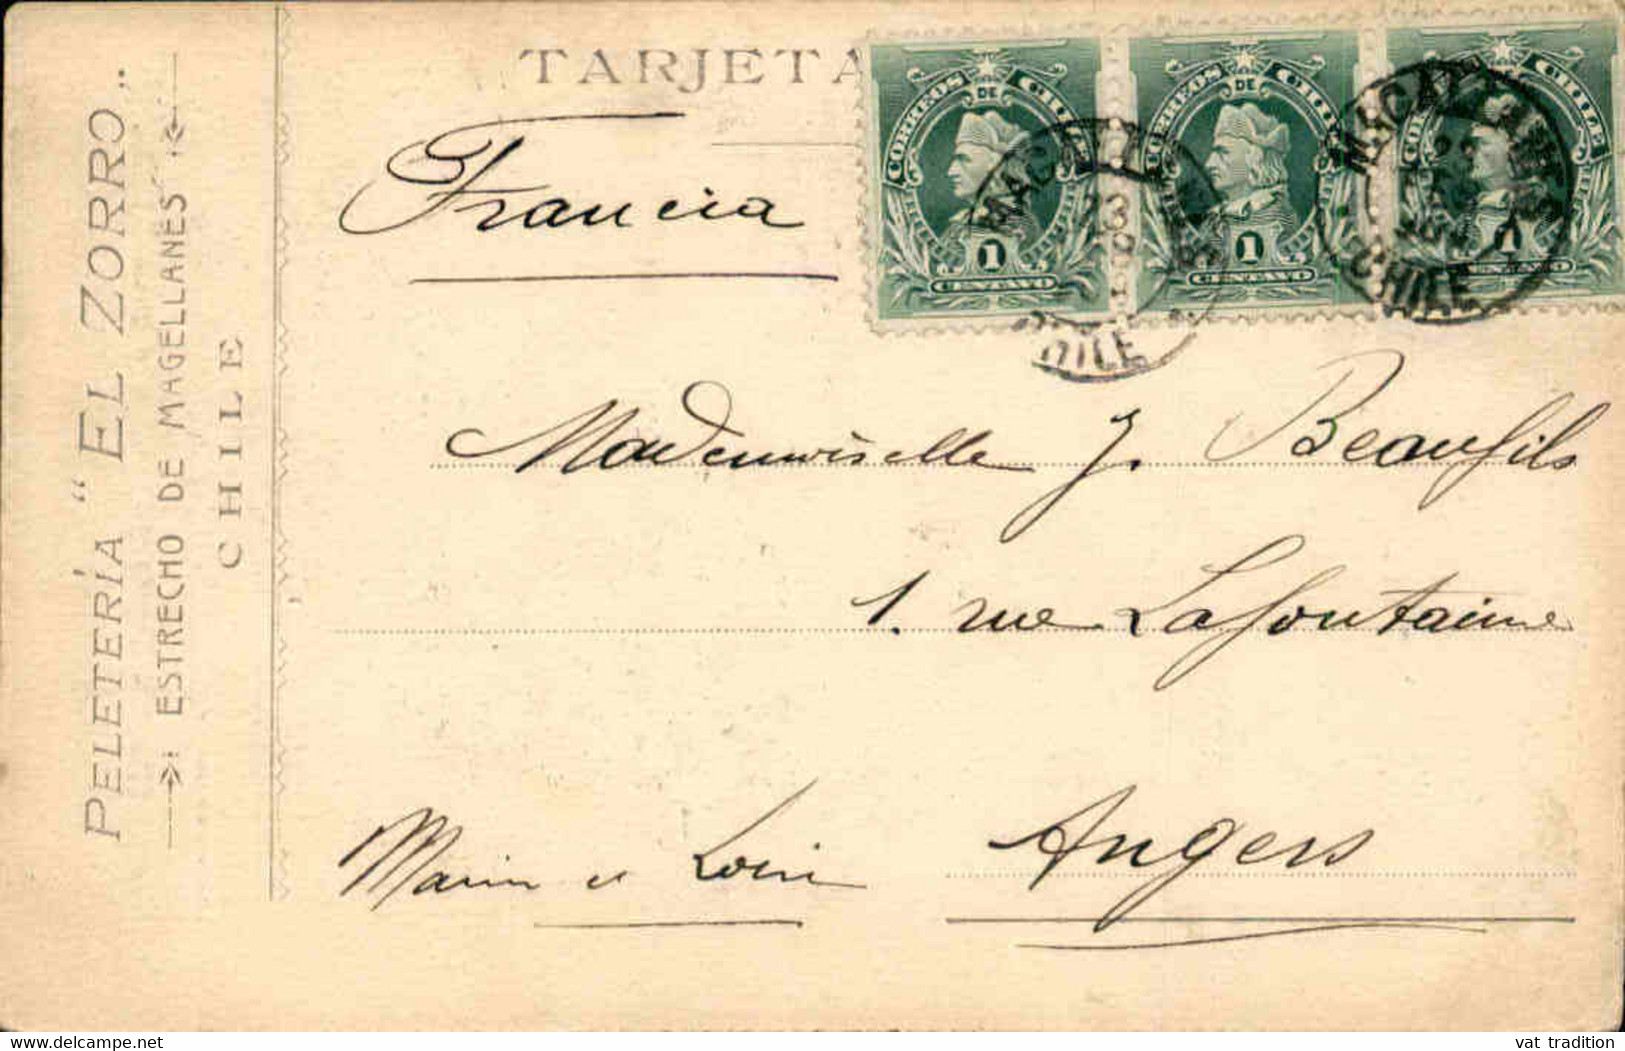 TARJETA
PELETERÍA "EL ZORRO"
ESTRECHO DE MAGELLANES
CHILE
CORREOS DE CHILE
1
CENTAVO
CORREOS DE CHILE
1
CENTAVO
CORREOS DE CHILE
1
CENTAVO
CHILE
CHILE
Francia
Mademoiselle J. Beaufils
1. rue Lafontaine
Angers
Maine et Loire
vat tradition